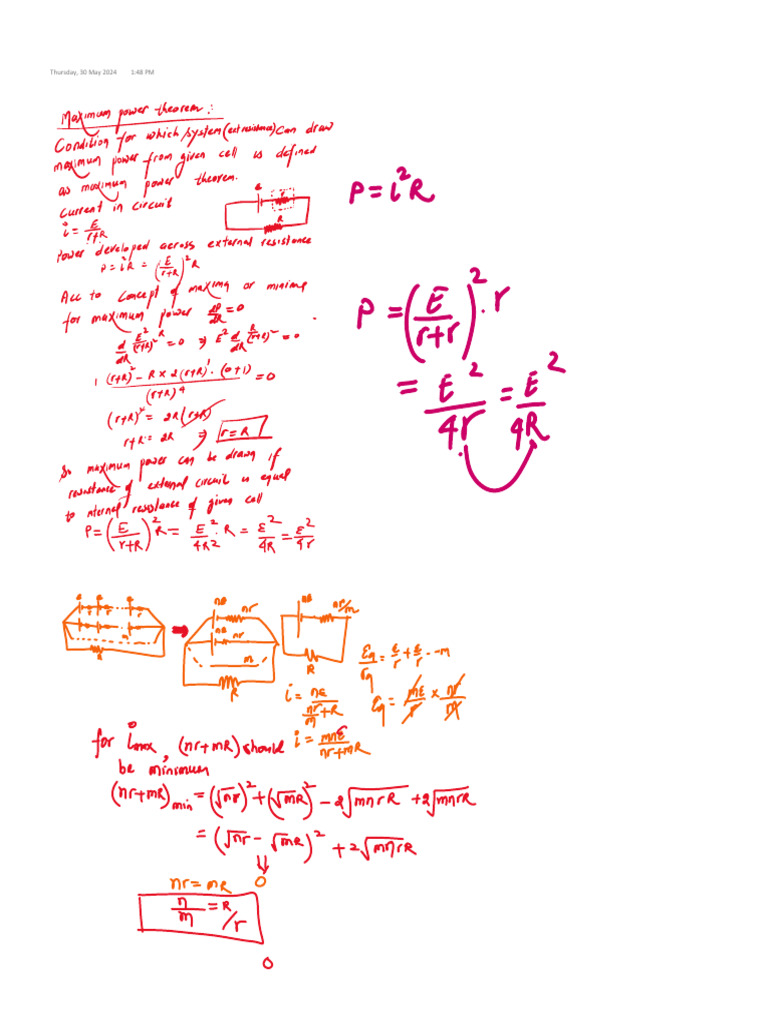 Thursday, 30 May 2024 1:48 PM
Maximum power theorem:
Condition for which system (ext resistance) can draw
maximum power from given cell is defined
as maximum power theorem.
Current in circuit
i = E/(r+R)
Power developed across external resistance
P = i²R = (E/(r+R))² R
Acc to concept of maxima or minima
for maximum power dP/dR = 0
d/dR E²R/(r+R)² = 0 ⇒ E² d/dR R/(r+R)² = 0
1 (r+R)² - R × 2(r+R)¹ · (0+1) / (r+R)⁴ = 0
(r+R)² = 2R(r+R)
r+R = 2R ⇒ r = R
So maximum power can be drawn if
resistance of external circuit is equal
to nternal resistance of given cell
P = (E/(r+R))² R = E²/4R² · R = E²/4R = E²/4r
e r
R
P = i²R
P = (E/(r+r))² · r
= E²/4r = E²/4R
e e e
r r r
m
R
nE nr
nE nr
m
R
nE nr/m
R
Eq/rq = E/r + E/r - - m
Eq = mE/r × nr/m
i = nE/(nr/m + R)
i = mnE/(nr+mR)
for imax, (nr+mR) should
be minimum
(nr+mR)min = (√nr)² + (√mR)² - 2√mnrR + 2√mnrR
= (√nr - √mR)² + 2√mnrR
⇓
0
nr = mR
n/m = R/r
0